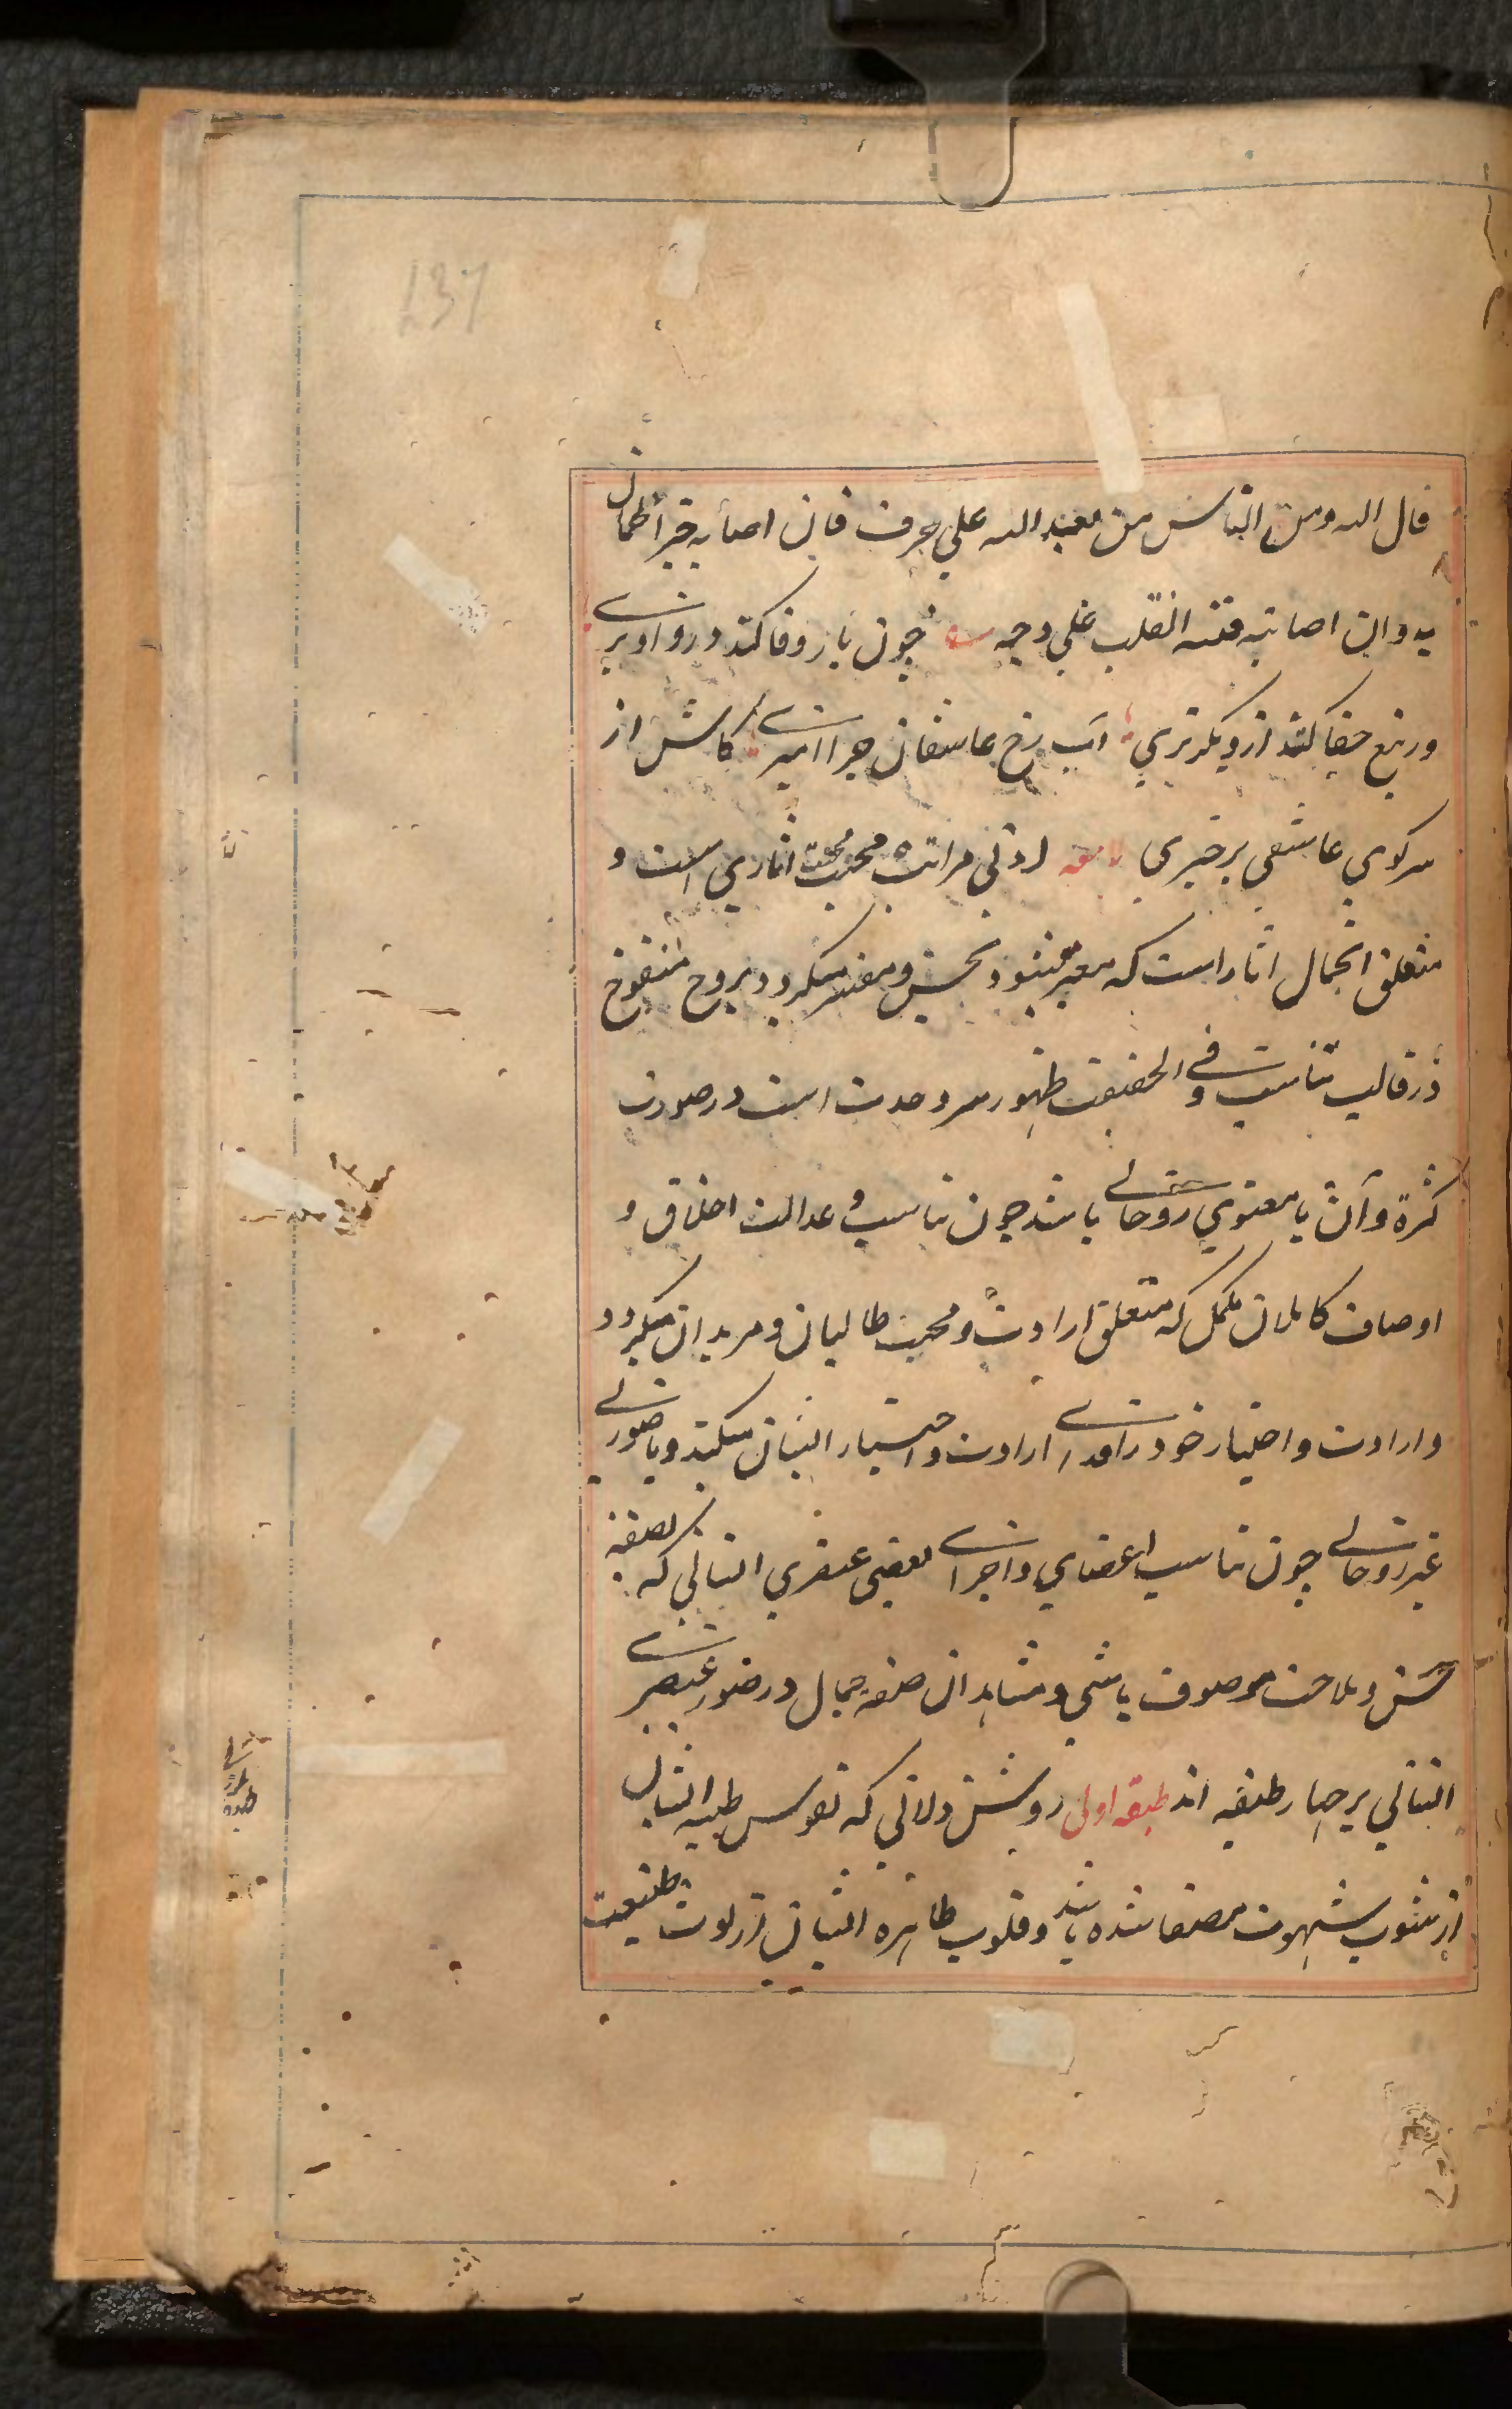 137
قال الله ومن الناس من یعبد الله علی حرف فان اصابه خیر اطمان
به وان اصابته فتنه انقلب علی وجهه چون یار وفا کند درو اویزی
ورتیغ جفا کشد ازو بگریزی اب رخ عاشقان چرا میریزی کاش از
سر کوی عاشقی برخیزی لامعه ادنی مراتب محبت محبت اثاری است و
متعلق ان جمال اثار است که معبر میشود بحسن و مفسر میگردد بروح منفوخ
در قالب تناسب و فی الحقیقت ظهور سر وحدت است در صورت
کثرة و آن یا معنوی روحانی باشد چون تناسب و عدالت اخلاق و
اوصاف کاملان مکمل که متعلق ارادت و محبت طالبان و مریدان میگردد
و ارادت و اختیار خود را فدای ارادت و اختیار ایشان میکنند و یا صوری
غیر روحانی چون تناسب اعضای و اجزای بعضی عنصری انسانی که بصفة
حسن و ملاحت موصوف باشد و مشاهدان صفة جمال در صور عنصری
انسانی بر چهار طبقه اند طبقه اولی روشن دلانی که نفوس طیبه ایشان
از شوب شهوت مصفا شده باشد و قلوب طاهره ایشان از لوث طبیعت